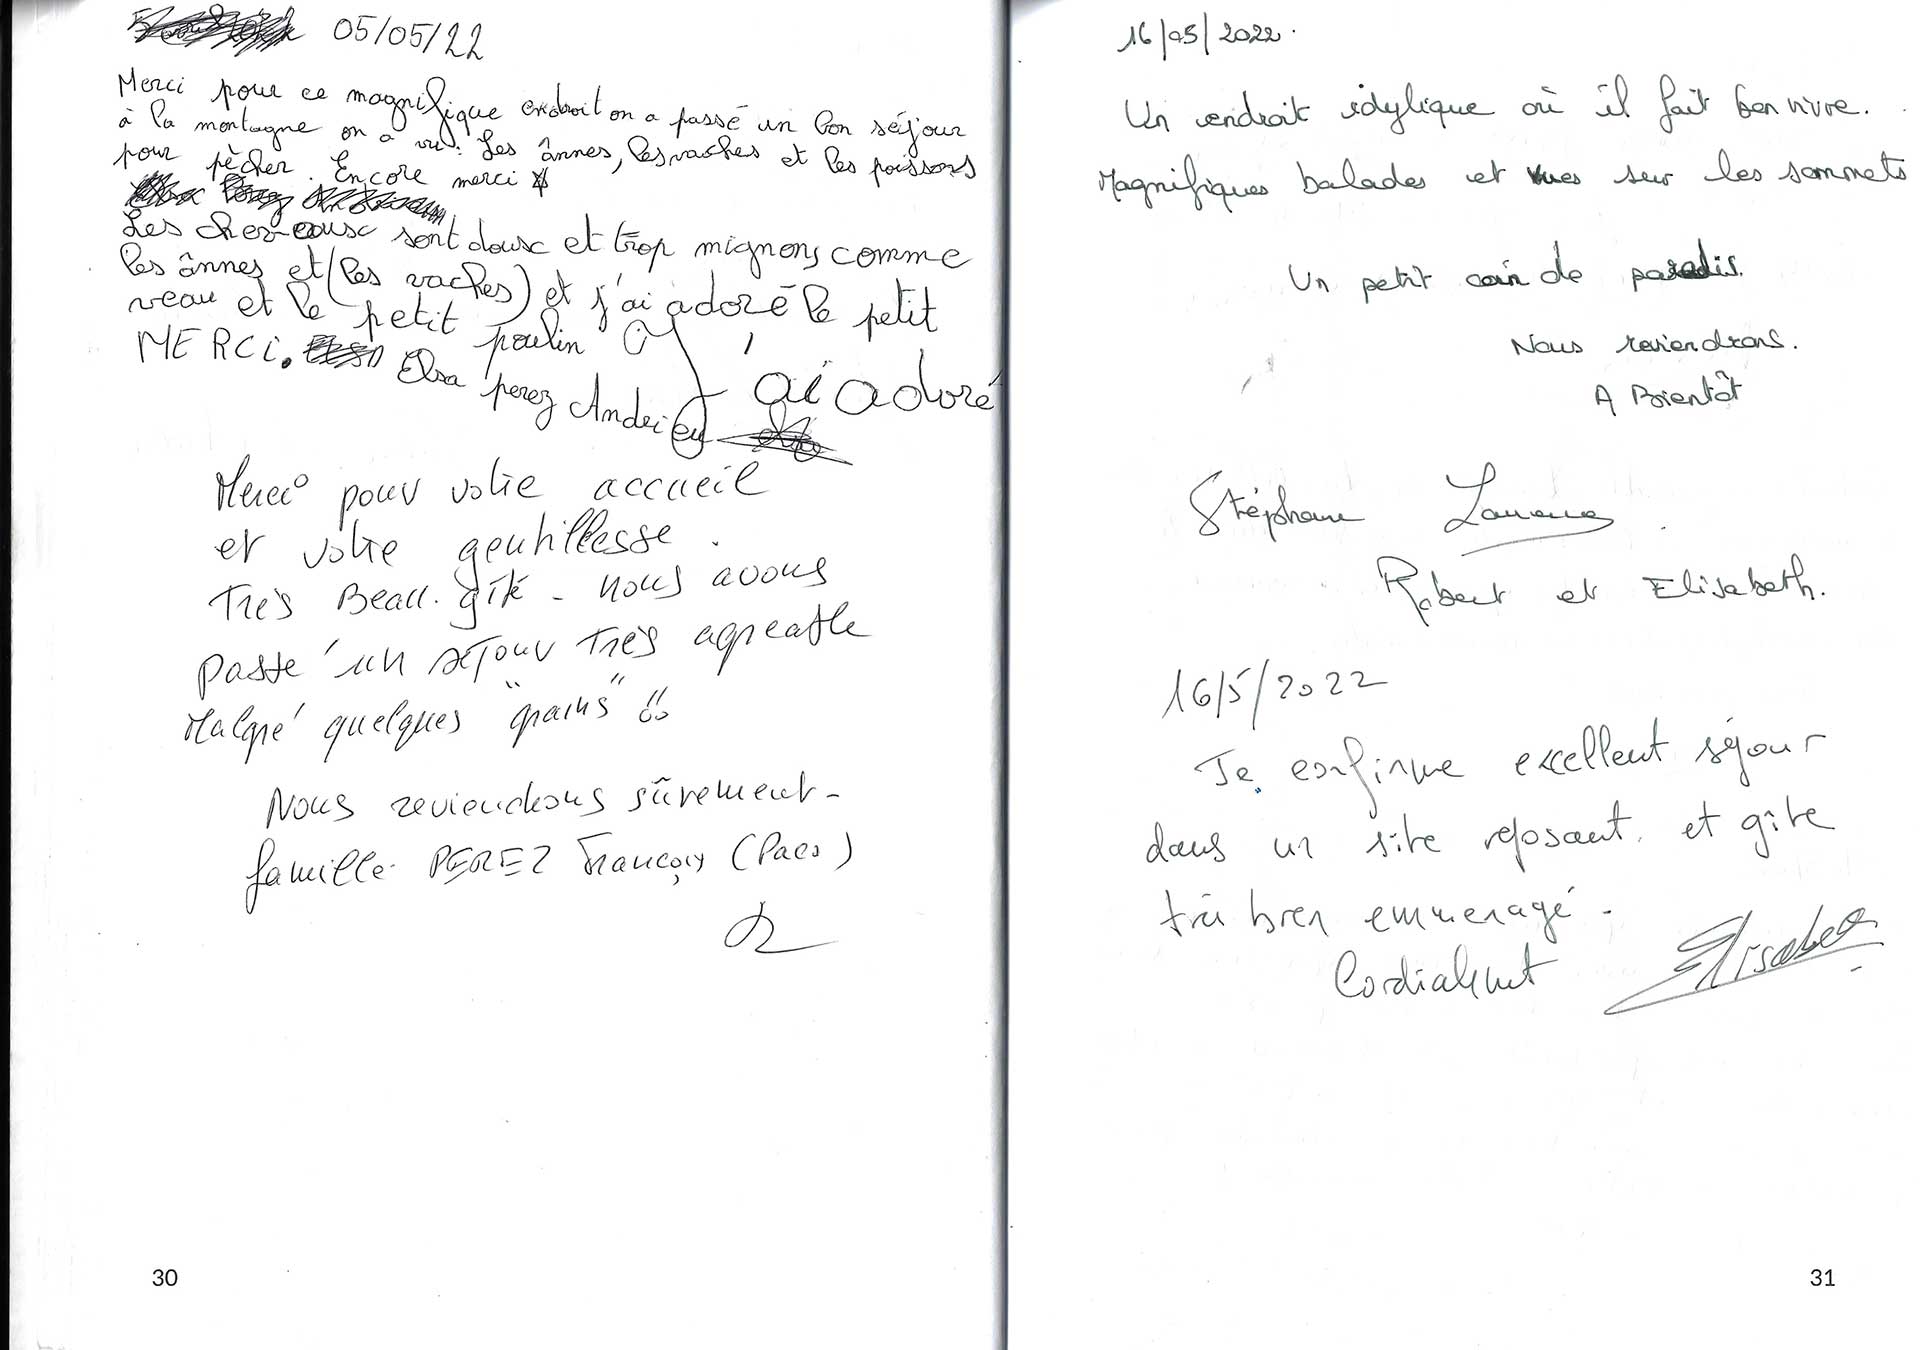 05/05/22
Merci pour ce magnifique endroit on a passé un bon séjour
à la montagne on a vu : Les ânnes, les vaches et les poissons
pour pêcher. Encore merci
Les cheveausc sont dousc et trop mignons comme
les ânnes et (les vaches) et j'ai adoré le petit
veau et le petit poulin
MERCi. Elsa perez Andrieu
j'ai adoré
Merci pour votre accueil
et votre gentillesse.
Très Beau. gîte - nous avons
passé un séjour très agréable
Malgré quelques "grains" !!
Nous reviendrons sûrement -
famille PEREZ François (Paco)
30
16/05/2022.
Un endroit idylique où il fait bon vivre.
Magnifiques balades et vues sur les sommets
Un petit coin de paradis.
Nous reviendrons.
A Bientôt
Stéphane
Robert et Elisabeth.
16/5/2022
Je confirme excellent séjour
dans un site reposant. et gîte
très bien emmenagé.
Cordialement Elisabeth
31